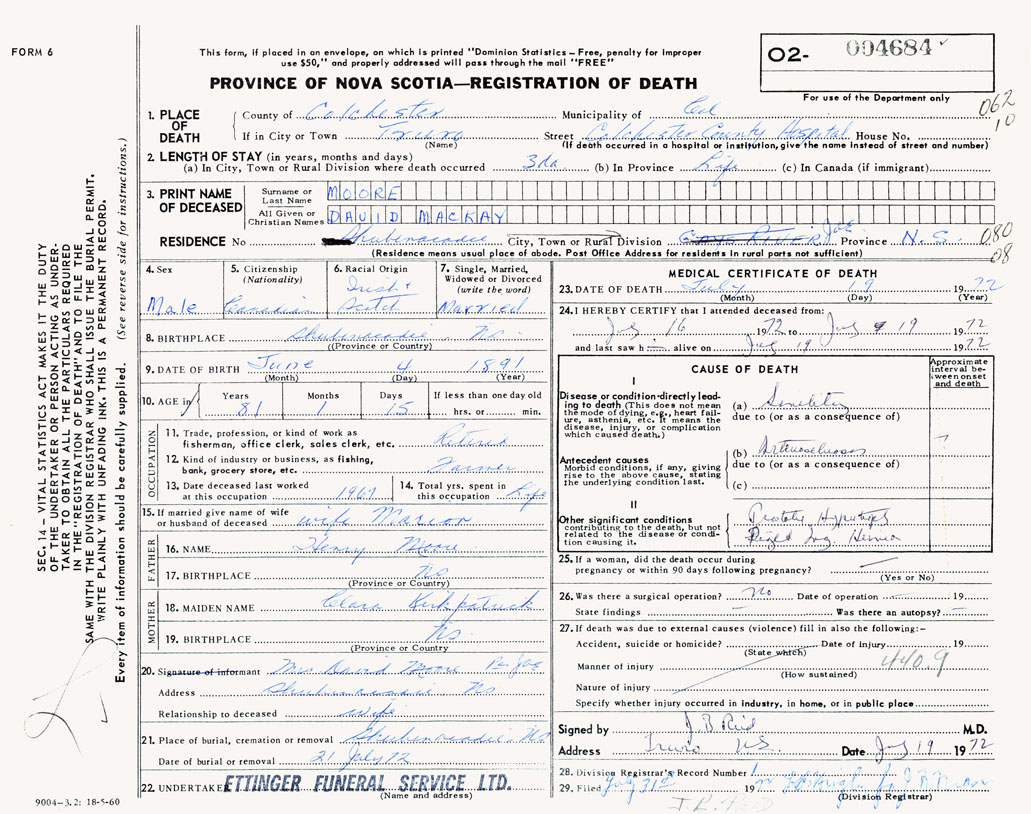 FORM 6
This form, if placed in an envelope, on which is printed "Dominion Statistics – Free, penalty for improper
use $50," and properly addressed will pass through the mail "FREE"
O2- 004684
PROVINCE OF NOVA SCOTIA—REGISTRATION OF DEATH
For use of the Department only
062
10
1. PLACE OF DEATH
County of Colchester Municipality of Col
If in City or Town Truro Street Colchester County Hospital House No.
(Name) (If death occurred in a hospital or institution, give the name instead of street and number)
2. LENGTH OF STAY (in years, months and days)
(a) In City, Town or Rural Division where death occurred 3da. (b) In Province Life (c) In Canada (if immigrant)
3. PRINT NAME OF DECEASED
Surname or Last Name MOORE
All Given or Christian Names DAVID MACKAY
RESIDENCE No Shubenacadie City, Town or Rural Division Province N.S. 080
08
(Residence means usual place of abode. Post Office Address for residents in rural parts not sufficient)
4. Sex
Male
5. Citizenship
(Nationality)
Canadian
6. Racial Origin
Irish &
Scotch
7. Single, Married,
Widowed or Divorced
(write the word)
Married
8. BIRTHPLACE Shubenacadie NS
(Province or Country)
9. DATE OF BIRTH June 4 1891
(Month) (Day) (Year)
10. AGE in Years 81 Months 1 Days 15 If less than one day old
hrs. or min.
OCCUPATION
11. Trade, profession, or kind of work as
fisherman, office clerk, sales clerk, etc. Retired
12. Kind of industry or business, as fishing,
bank, grocery store, etc. Farmer
13. Date deceased last worked
at this occupation 1967
14. Total yrs. spent in
this occupation Life
15. If married give name of wife
or husband of deceased wife Marion
FATHER
16. NAME Henry Moore
17. BIRTHPLACE NS
(Province or Country)
MOTHER
18. MAIDEN NAME Clara Kirkpatrick
19. BIRTHPLACE NS
(Province or Country)
20. Signature of informant Mrs David Moore
Address Shubenacadie NS
Relationship to deceased wife
21. Place of burial, cremation or removal Shubenacadie NS
Date of burial or removal 21 July 72
22. UNDERTAKE ETTINGER FUNERAL SERVICE LTD.
(Name and address)
9004–3.2: 18-5-60
MEDICAL CERTIFICATE OF DEATH
23. DATE OF DEATH July 19 1972
(Month) (Day) (Year)
24. I HEREBY CERTIFY that I attended deceased from:
July 16 1972 to July 19 1972
and last saw h alive on July 19 1972
CAUSE OF DEATH
Approximate
interval be-
tween onset
and death
I
Disease or condition directly lead-
ing to death (This does not mean
the mode of dying, e.g., heart fail-
ure, asthenia, etc. It means the
disease, injury, or complication
which caused death.)
(a) Senility
due to (or as a consequence of)
Antecedent causes
Morbid conditions, if any, giving
rise to the above cause, stating
the underlying condition last.
(b)
due to (or as a consequence of)
(c)
II
Other significant conditions
contributing to the death, but not
related to the disease or condi-
tion causing it.
Right Ing. Hernia
25. If a woman, did the death occur during
pregnancy or within 90 days following pregnancy?
(Yes or No)
26. Was there a surgical operation? No Date of operation 19
State findings Was there an autopsy?
27. If death was due to external causes (violence) fill in also the following:–
Accident, suicide or homicide? Date of injury 19
(State which)
440.9
Manner of injury
(How sustained)
Nature of injury
Specify whether injury occurred in industry, in home, or in public place
Signed by J B Reid M.D.
Address Truro N.S. Date July 19 1972
28. Division Registrar's Record Number
29. Filed July 31st 19
(Division Registrar)
J. B. REID
SEC. 14 – VITAL STATISTICS ACT MAKES IT THE DUTY
OF THE UNDERTAKER OR PERSON ACTING AS UNDER-
TAKER TO OBTAIN ALL THE PARTICULARS REQUIRED
IN THE "REGISTRATION OF DEATH" AND TO FILE THE
SAME WITH THE DIVISION REGISTRAR WHO SHALL ISSUE THE BURIAL PERMIT.
WRITE PLAINLY WITH UNFADING INK. THIS IS A PERMANENT RECORD.
Every item of information should be carefully supplied. (See reverse side for instructions.)